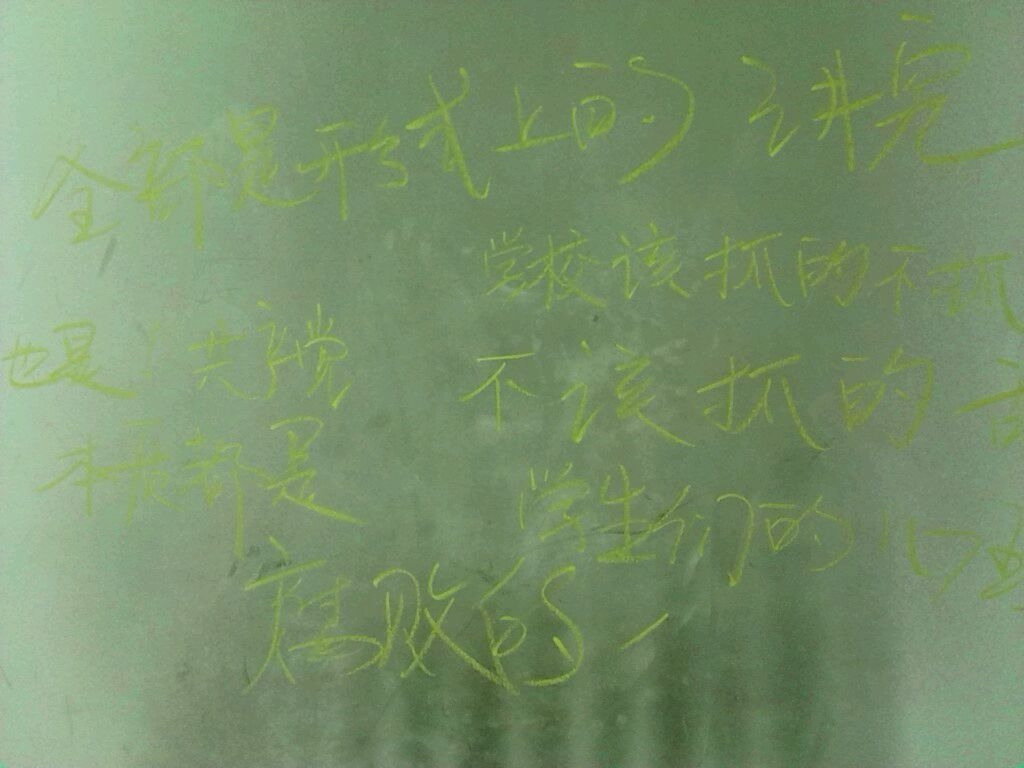 全部是形式上的 讲完
学校该抓的不抓
也是 共产党
不该抓的
本质都是
学生们的心
腐败的